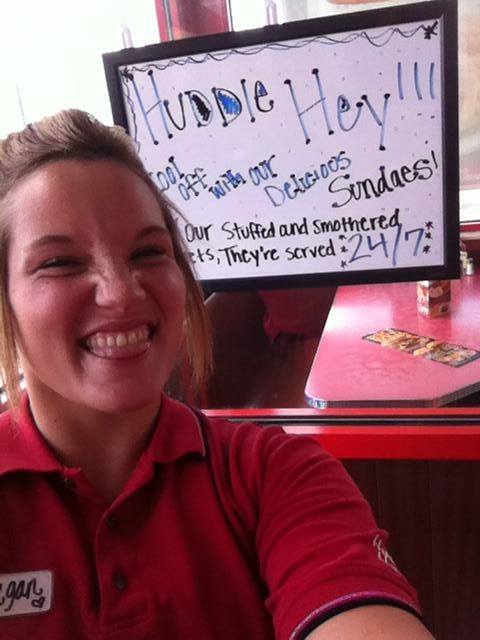 Huddle Hey!!!
off with our Delicious Sundaes!
our Stuffed and Smothered
They're served 24/7